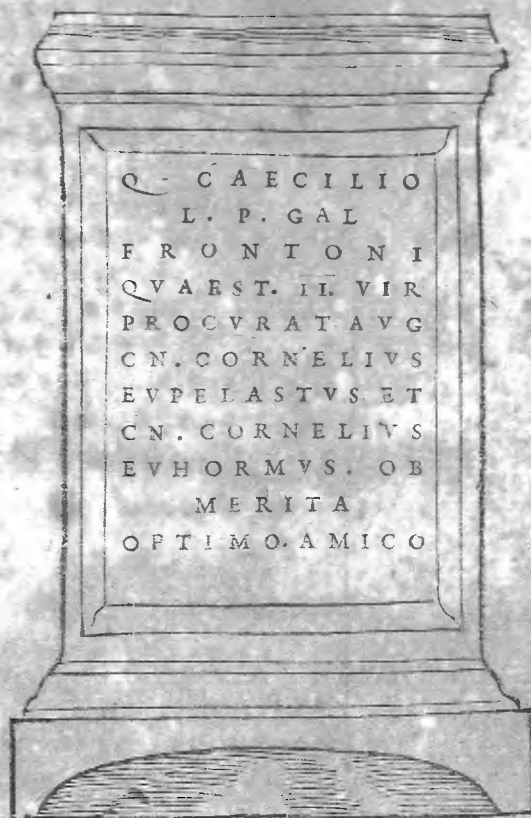 Q. CAECILIO
L. P. GAL
FRONTONI
QVAEST. II. VIR
PROCVRAT AVG
CN. CORNELIVS
EVPELASTVS ET
CN. CORNELIVS
EVHORMVS. OB
MERITA
OPTIMO. AMICO